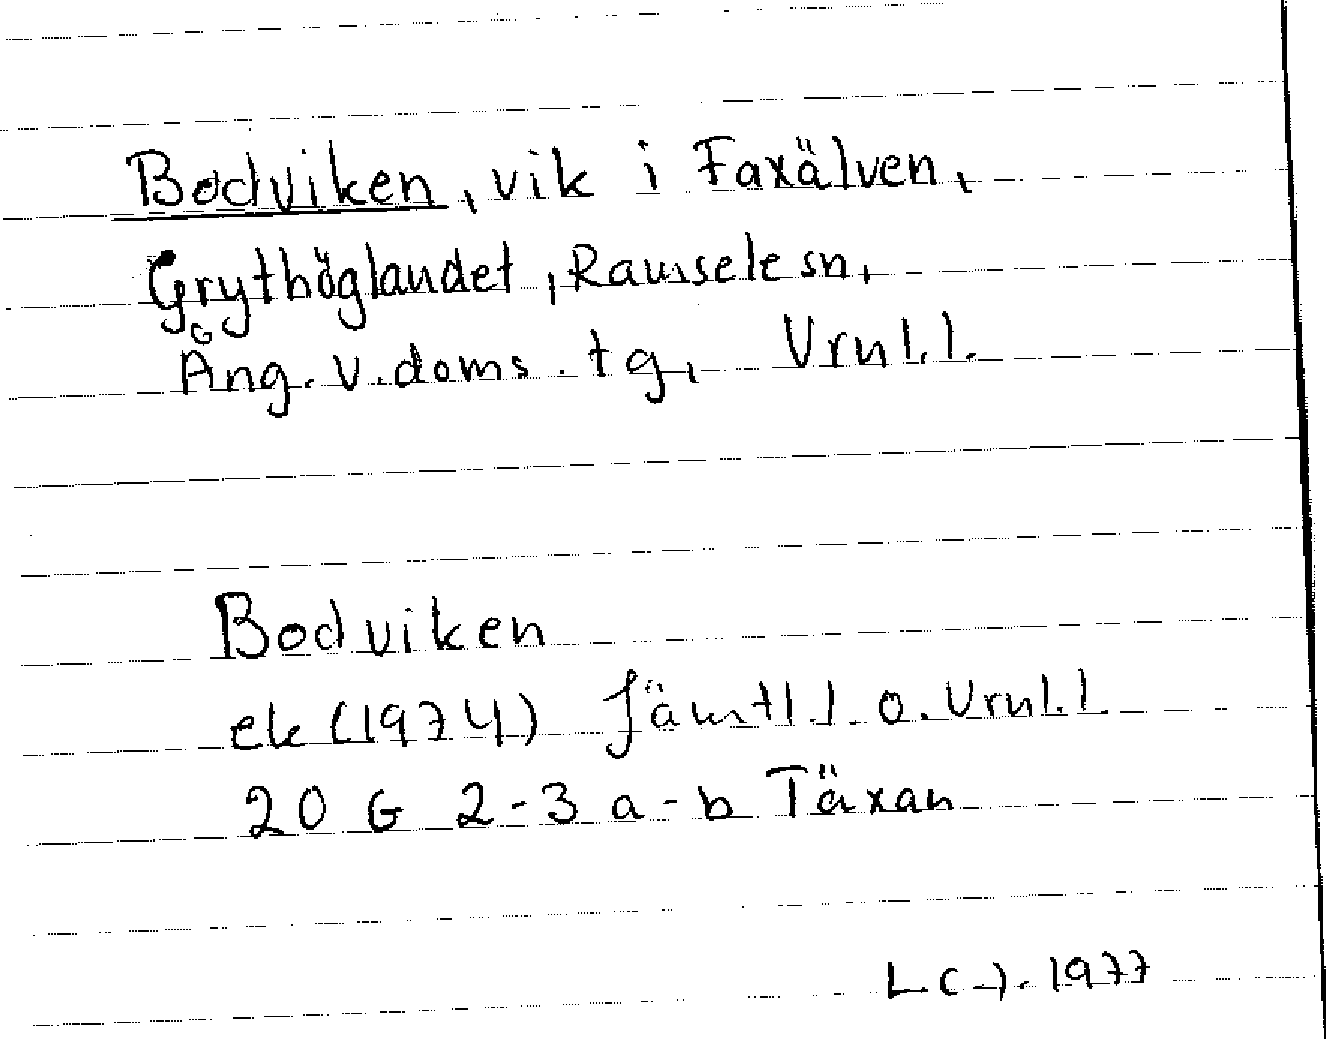 Bodviken, vik i Faxälven,
Grythöglandet, Ramsele sn,
Ång. v. doms. tg, Vrnl. l.
Bodviken
ek (1974) Jämtl l. o. Vrnl. l
20 G 2-3 a-b Täxan
1977